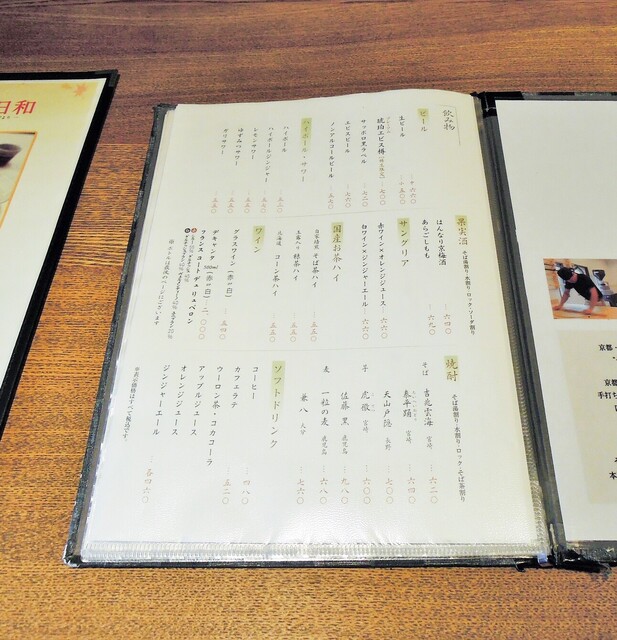 日和
飲み物
ビール
生ビール
中 六六〇
小 五〇〇
琥珀エビス樽
七〇〇
サッポロ黒ラベル
七二〇
エビスビール
七六〇
ノンアルコールビール
五七〇
ハイボール・サワー
ハイボール
五五〇
ハイボールジンジャー
五五〇
レモンサワー
五五〇
ゆずみつサワー
五五〇
ガリサワー
五五〇
果実酒 そば湯割り・水割り・ロック・ソーダ割り
はんなり京梅酒
六四〇
あらごしもも
六九〇
サングリア
赤ワイン×オレンジジュース
六六〇
白ワイン×ジンジャーエール
六六〇
国産お茶ハイ
自家焙煎 そば茶ハイ
五五〇
玉露入り 緑茶ハイ
五五〇
北海道 コーン茶ハイ
五五〇
ワイン
グラスワイン（赤・白）
五四〇
デキャンタ（赤・白）
二、〇〇〇
フランス コートデュ リュベロン
※ボトルは裏面のページにございます
焼酎 そば湯割り・水割り・ロック・そば茶割り
そば 吉兆雲海 宮崎
六二〇
泰平踊 宮崎
六四〇
天山戸隠 長野
七〇〇
芋 虎徹 宮崎
六〇〇
佐藤 黒 鹿児島
九八〇
麦 一粒の麦 鹿児島
六八〇
兼八 大分
七六〇
ソフトドリンク
コーヒー
四八〇
カフェラテ
五二〇
ウーロン茶・コカコーラ
アップルジュース
オレンジジュース
ジンジャーエール
各四六〇
※表示価格はすべて税込です。
京都・
京都
手打ち
本